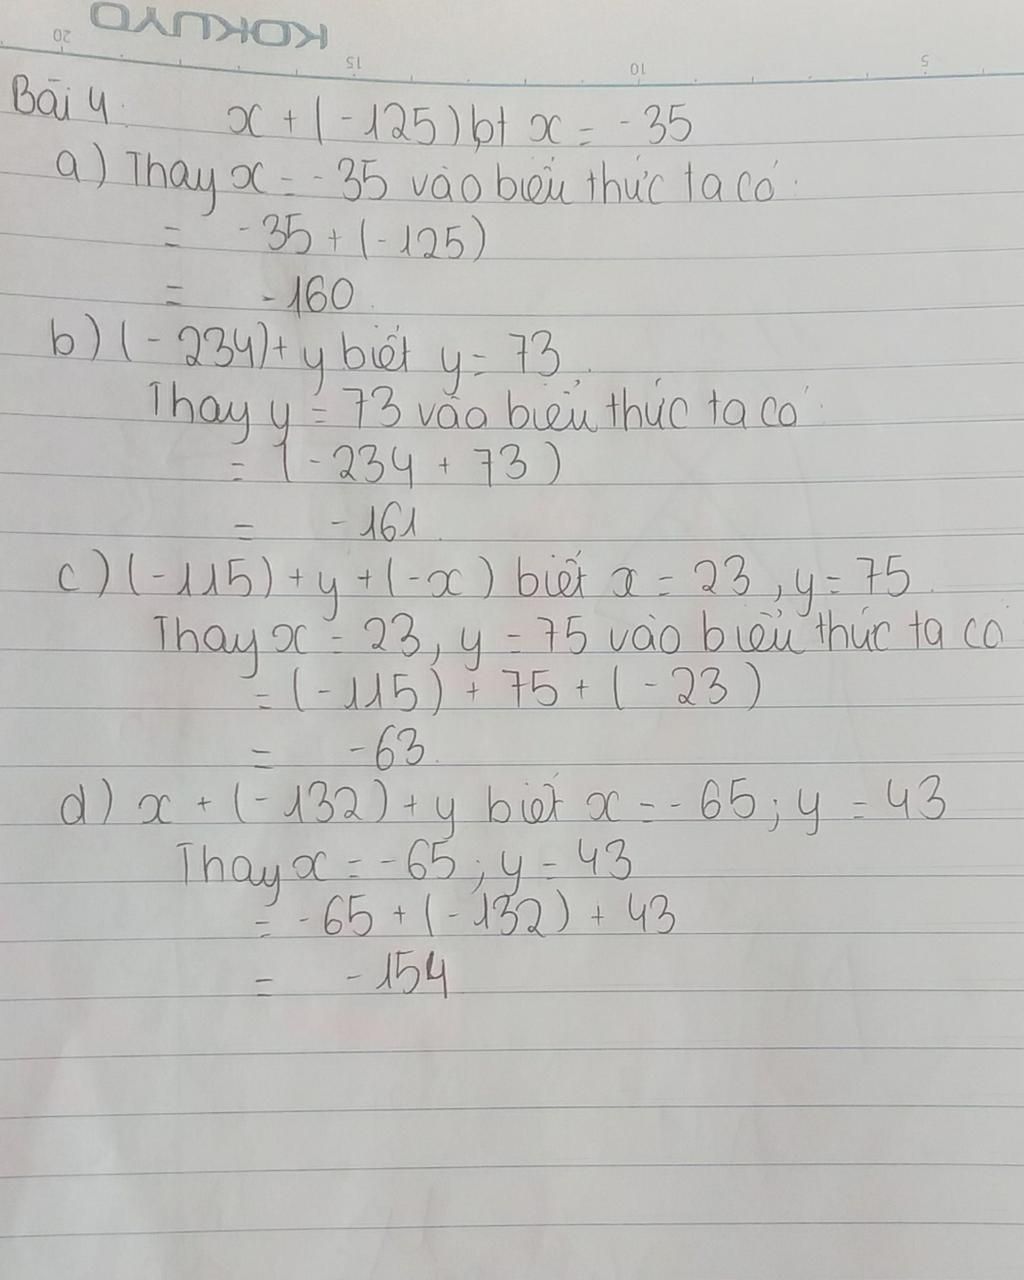 KOKUYO
20 15 10 5
Bài 4. x + (-125) bt x = -35
a) Thay x = -35 vào biểu thức ta có:
= -35 + (-125)
= -160.
b) (-234) + y biết y = 73.
Thay y = 73 vào biểu thức ta có:
= (-234 + 73)
= -161.
c) (-115) + y + (-x) biết x = 23, y = 75.
Thay x = 23, y = 75 vào biểu thức ta có
= (-115) + 75 + (-23)
= -63.
d) x + (-132) + y biết x = -65; y = 43
Thay x = -65; y = 43
= -65 + (-132) + 43
= -154